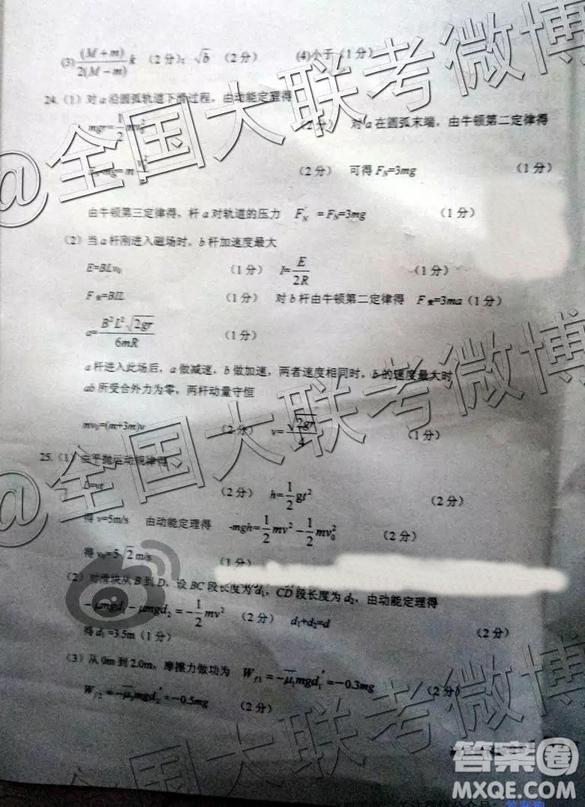 (3) (M+m)/2(M−m) k （2分）； √b （2分） (4)小于（1分）
24.（1）对a沿圆弧轨道下滑过程，由动能定理得
mgr=1/2 mv₀² （2分） 对a在圆弧末端，由牛顿第二定律得
（2分） 可得 F_N=3mg （1分）
由牛顿第三定律得，杆a对轨道的压力 F_N′=F_N=3mg （1分）
（2）当a杆刚进入磁场时，b杆加速度最大
E=BLv₀ （1分） I=E/2R （1分）
F安=BIL （1分） 对b杆由牛顿第二定律得 F安=3ma（1分）
a=B²L²√2gr/6mR （1分）
a杆进入此场后，a做减速，b做加速，两者速度相同时，b的速度最大时
ab所受合外力为零，两杆动量守恒
mv₀=(m+3m)v （2分） v=√2gr/4 （1分）
25.（1）由平抛运动规律得
L=vt （2分） h=1/2 gt² （2分）
得 v=5m/s 由动能定理得 -mgh=1/2 mv²−1/2 mv₀² （2分）
得 v₀=5√2 m/s （1分）
（2）对滑块从B到D，设BC段长度为d₁，CD段长度为d₂，由动能定理得
−μmgd₁−μmgd₂=−1/2 mv² （2分） d₁+d₂=d （2分）
得 d₁=3.5m（1分）
（3）从0m到2.0m，摩擦力做功为 W_f1=−μ₁mgd₁′=−0.3mg （2分）
W_f2=−μ₂mgd₂′=−0.5mg （2分）
@全国大联考微博
@全国大联考微博
@全国大联考微博
答案圈
MXQE.COM